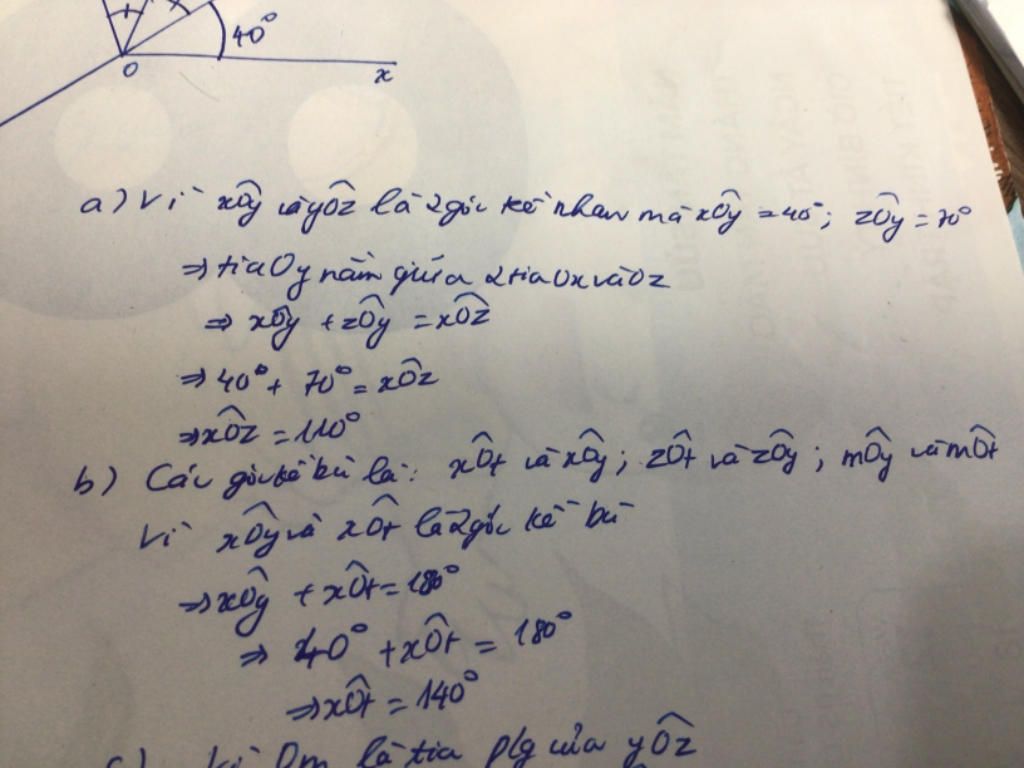 40°
O
x
a) Vì xÔy và yÔz là 2 góc kề nhau mà xÔy = 40°; zÔy = 70°
⇒ tia Oy nằm giữa 2 tia Ox và Oz
⇒ xÔy + zÔy = xÔz
⇒ 40° + 70° = xÔz
⇒ xÔz = 110°
b) Các góc kề bù là: xÔt và xÔy; zÔt và zÔy; mÔy và mÔt
Vì xÔy và xÔt là 2 góc kề bù
⇒ xÔy + xÔt = 180°
⇒ 40° + xÔt = 180°
⇒ xÔt = 140°
c) Vì Om là tia p/g của yÔz